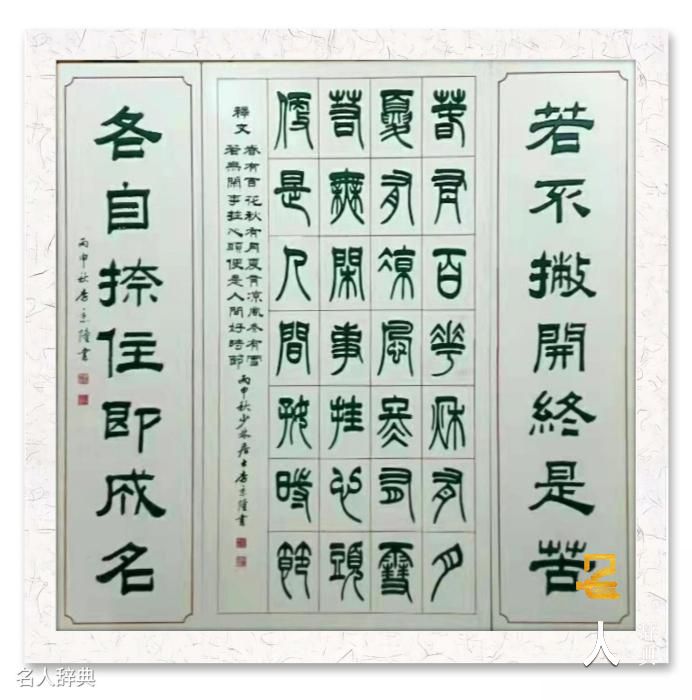 若不撇開終是苦
春有百花秋有月
夏有涼風冬有雪
若無閑事挂心頭
便是人間好時節
釋文
春有百花秋有月夏有凉風冬有雪
若無閑事挂心頭便是人間好時節
丙申秋少林居士李京隆書
各自捺住即成名
丙申秋李京隆書
名人辞典
名人辞典